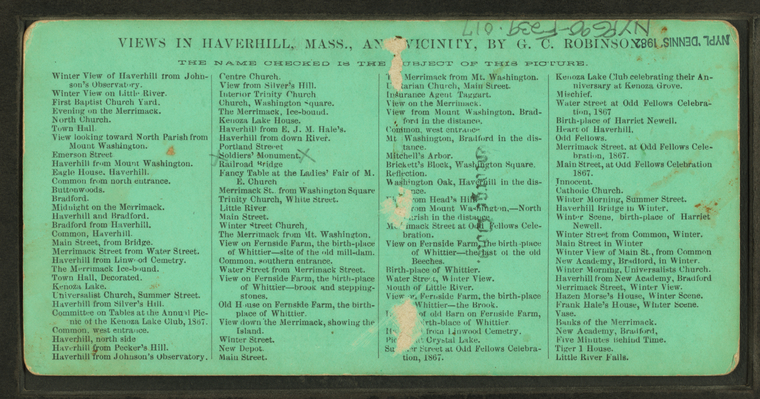 NYPL DENNIS 1982
NYRG90-F239
.017
VIEWS IN HAVERHILL, MASS., AN VICINITY, BY G. C. ROBINSON
THE NAME CHECKED IS THE SUBJECT OF THIS PICTURE.
Winter View of Haverhill from John-
son's Observatory.
Winter View on Little River.
First Baptist Church Yard.
Evening on the Merrimack.
North Church.
Town Hall.
View looking toward North Parish from
Mount Washington.
Emerson Street
Haverhill from Mount Washington.
Eagle House, Haverhill.
Common from north entrance.
Buttonwoods.
Bradford.
Midnight on the Merrimack.
Haverhill and Bradford.
Bradford from Haverhill.
Common, Haverhill.
Main Street, from Bridge.
Merrimack Street from Water Street.
Haverhill from Linwood Cemetry.
The Merrimack Ice-bound.
Town Hall, Decorated.
Kenoza Lake.
Universalist Church, Summer Street.
Haverhill from Silver's Hill.
Committee on Tables at the Annual Pic-
nic of the Kenoza Lake Club, 1867.
Common, west entrance.
Haverhill, north side
Haverhill from Pecker's Hill.
Haverhill from Johnson's Observatory.
Centre Church.
View from Silver's Hill.
Interior Trinity Church
Church, Washington Square.
The Merrimack, Ice-bound.
Kenoza Lake House.
Haverhill from E. J. M. Hale's.
Haverhill from down River.
Portland Street
Soldiers' Monument.
Railroad Bridge
Fancy Table at the Ladies' Fair of M.
E. Church
Merrimack St. from Washington Square
Trinity Church, White Street.
Little River.
Main Street.
Winter Street Church.
The Merrimack from Mt. Washington.
View on Fernside Farm, the birth-place
of Whittier—site of the old mill-dam.
Common, southern entrance.
Water Street from Merrimack Street.
View on Fernside Farm, the birth-place
of Whittier—brook and stepping-
stones.
Old House on Fernside Farm, the birth-
place of Whittier.
View down the Merrimack, showing the
Island.
Winter Street.
New Depot.
Main Street.
Merrimack from Mt. Washington.
Unitarian Church, Main Street.
Insurance Agent Taggart.
View on the Merrimack.
View from Mount Washington, Brad-
ford in the distance.
Common, west entrance
Mt Washington, Bradford in the dis-
tance.
Mitchell's Arbor.
Brickett's Block, Washington Square.
Reflection.
Washington Oak, Haverhill in the dis-
nce.
from Head's Hill
from Mount Washington,—North
rish in the distance
Merrimack Street at Odd Fellows Cele-
bration.
View on Fernside Farm, the birth-place
of Whittier—the last of the old
Beeches.
Birth-place of Whittier.
Water Street, Winter View.
Mouth of Little River.
View on Fernside Farm, the birth-place
Whittier—the Brook.
of old Barn on Fernside Farm,
rth-place of Whittier.
from Linwood Cemetry.
Crystal Lake.
Summer Street at Odd Fellows Celebra-
tion, 1867.
Kenoza Lake Club celebrating their An-
niversary at Kenoza Grove.
Mischief.
Water Street at Odd Fellows Celebra-
tion, 1867
Birth-place of Harriet Newell.
Heart of Haverhill.
Odd Fellows.
Merrimack Street, at Odd Fellows Cele-
bration, 1867.
Main Street, at Odd Fellows Celebration
1867.
Innocent.
Catholic Church.
Winter Morning, Summer Street.
Haverhill Bridge in Winter.
Winter Scene, birth-place of Harriet
Newell.
Winter Street from Common, Winter.
Main Street in Winter
Winter View of Main St., from Common
New Academy, Bradford, in Winter.
Winter Morning, Universalists Church.
Haverhill from New Academy, Bradford
Merrimack Street, Winter View.
Hazen Morse's House, Winter Scene.
Frank Hale's House, Winter Scene.
Vase.
Banks of the Merrimack.
New Academy, Bradford,
Five Minutes Behind Time.
Tiger 1 House.
Little River Falls.